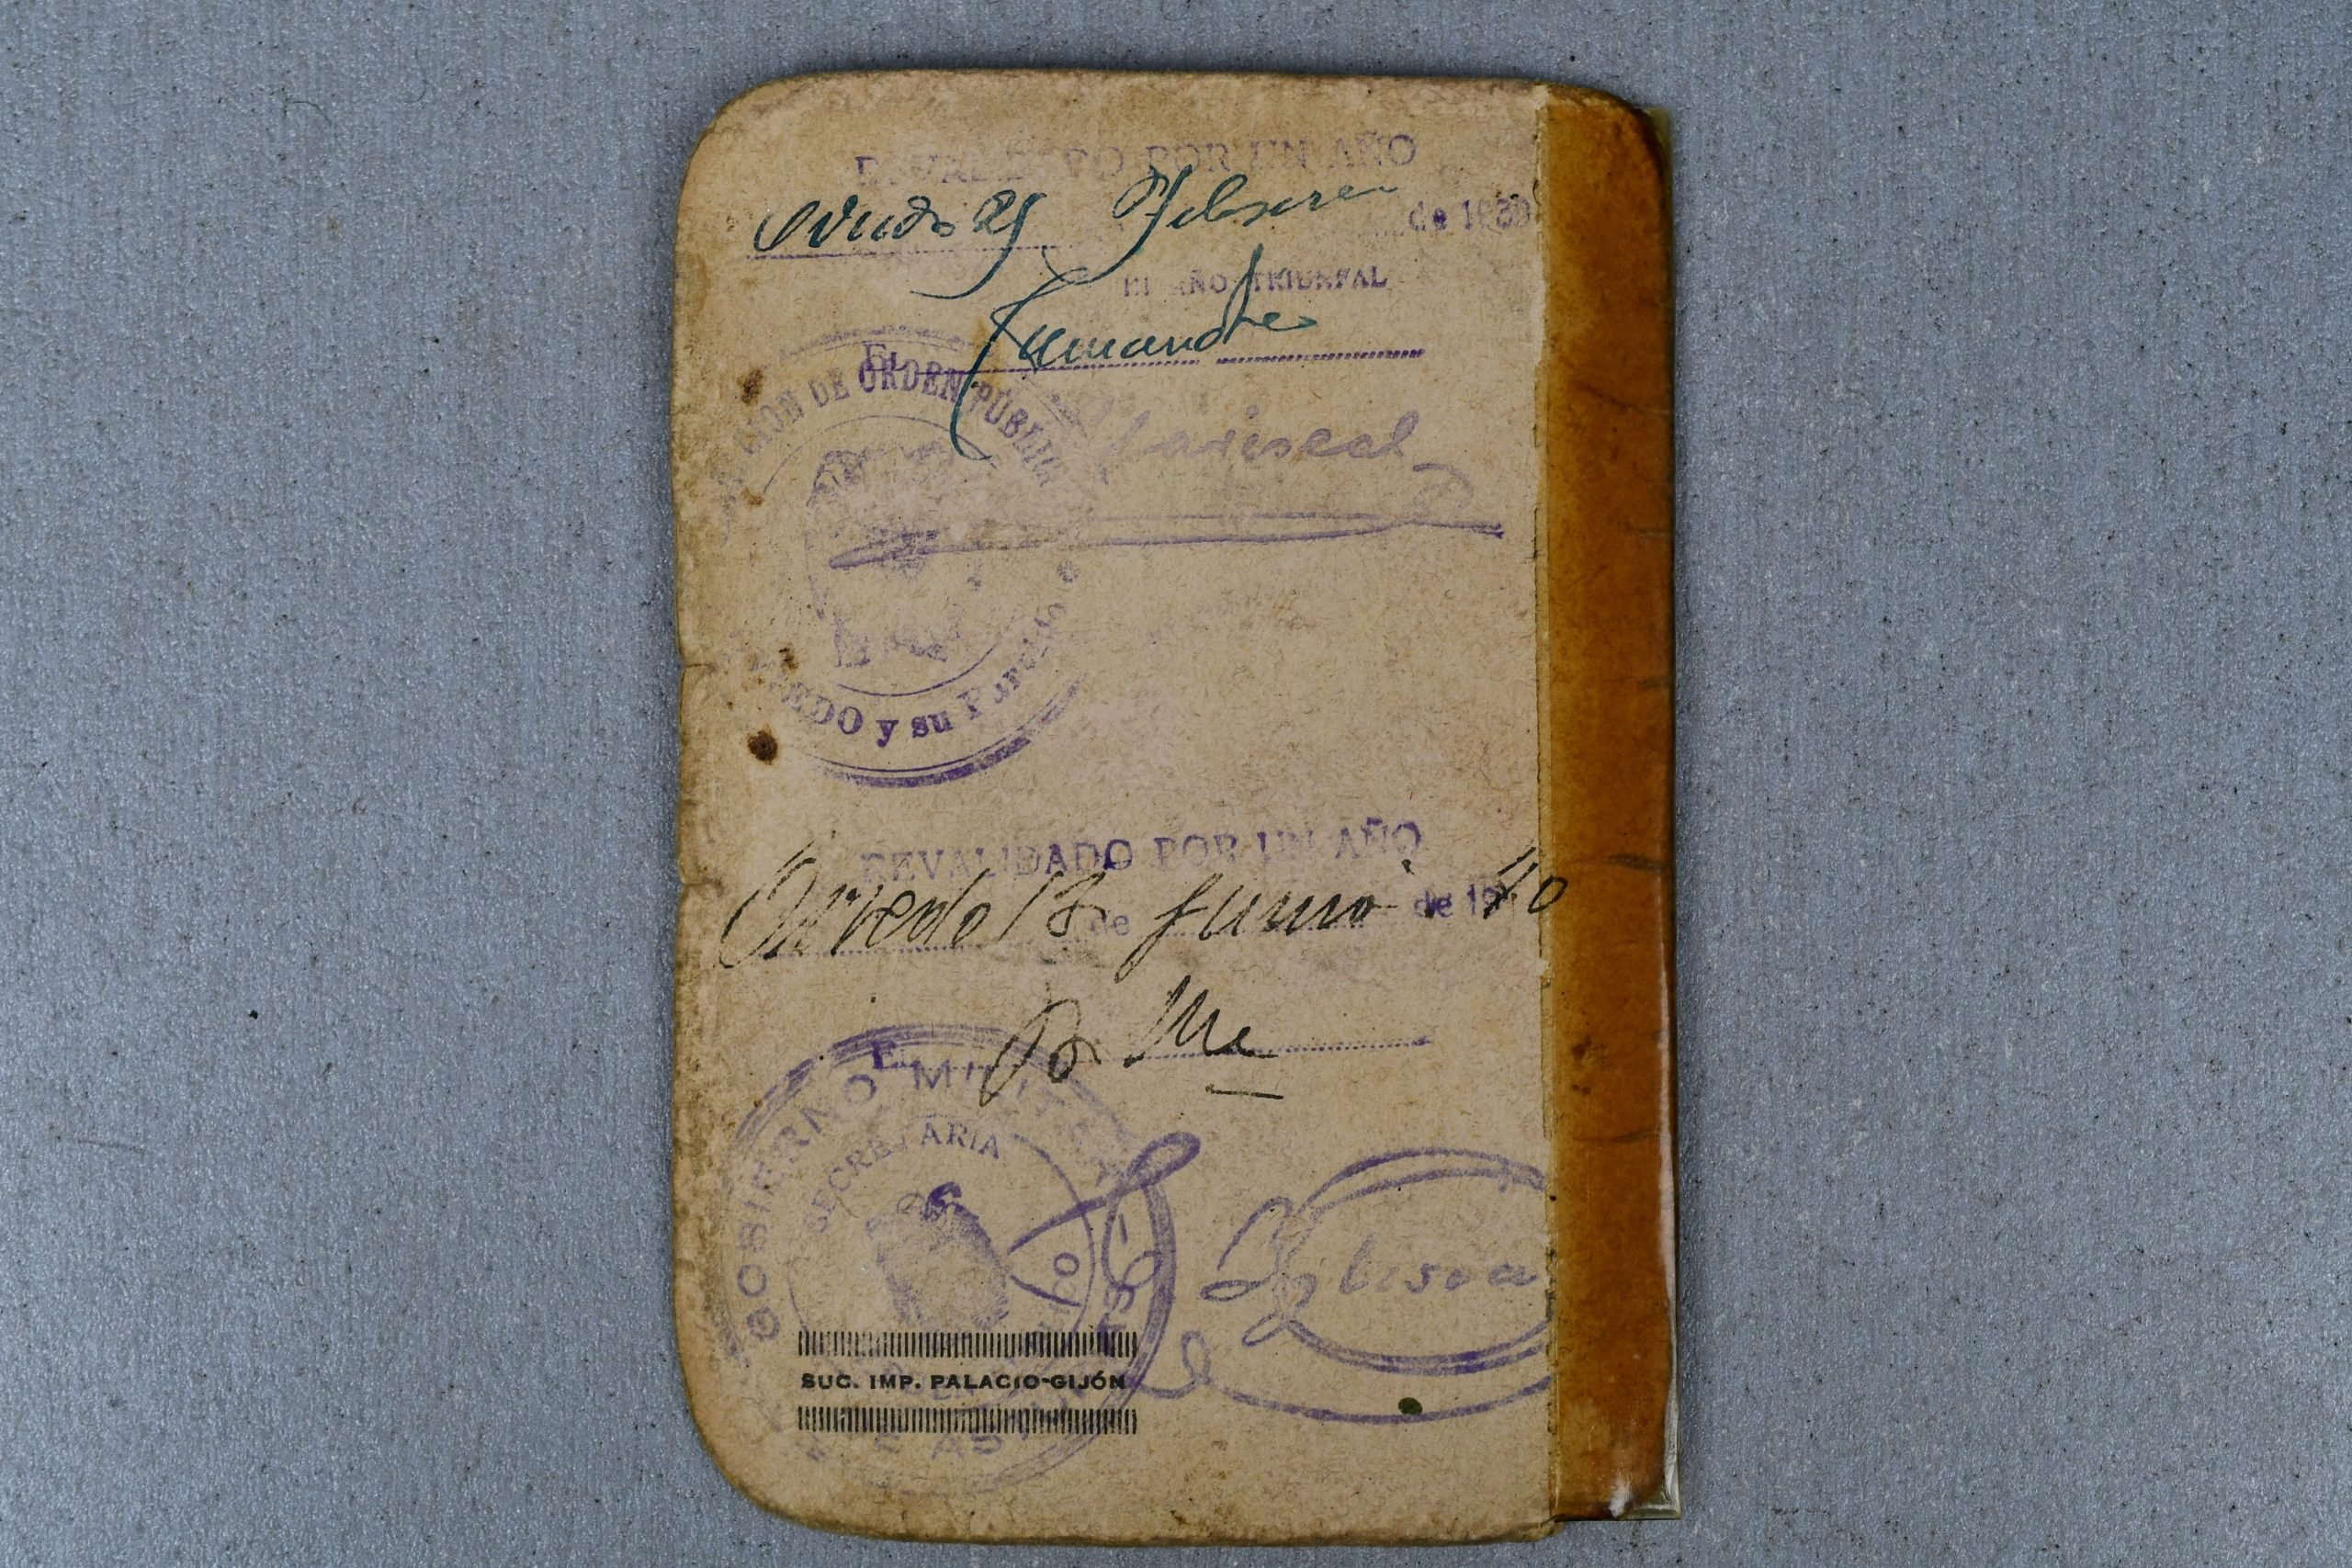 REVALIDADO POR UN AÑO
Oviedo 25 Febrero de 1939
III AÑO TRIUNFAL
El Comandte
DE ORDEN PÚBLICO
Mariscal
OVIEDO y su Partido
REVALIDADO POR UN AÑO
Oviedo 18 de Junio de 1940
El
GOBIERNO MILITAR
SECRETARIA
Yglesias
SUC. IMP. PALACIO-GIJÓN